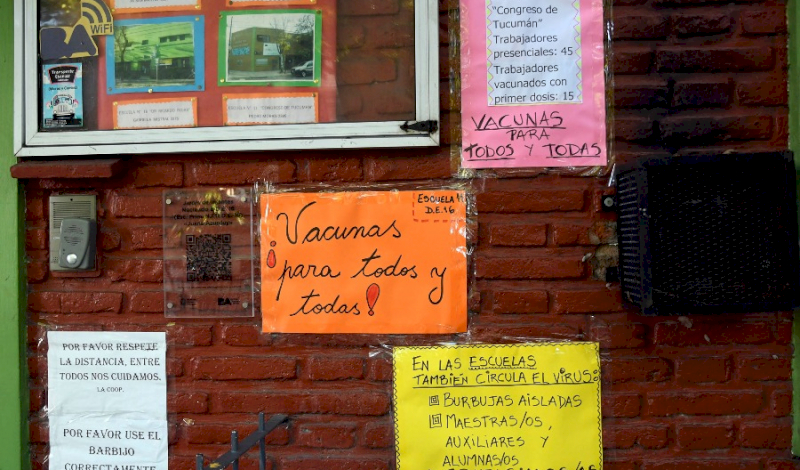 WiFi
BA
"Congreso
de Tucumán"
Trabajadores
presenciales: 45
Trabajadores
vacunados con
primer dosis: 15
VACUNAS
PARA
TODOS Y TODAS
ESCUELA
D.E.16
¡Vacunas
para todos y
todas!
BA
POR FAVOR RESPETE
LA DISTANCIA, ENTRE
TODOS NOS CUIDAMOS.
LA COOP.
POR FAVOR USE EL
BARBIJO
CORRECTAMENTE
EN LAS ESCUELAS
TAMBIÉN CIRCULA EL VIRUS:
BURBUJAS AISLADAS
MAESTRAS/OS,
AUXILIARES Y
ALUMNAS/OS